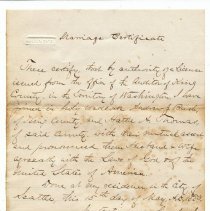 Marriage Certificate
These certify that by authority of a License
issued from the office of the Auditor of King
County in the Territory of Washington, I have
joined in holy wedlock
of King County and Hattie A. Thomas
of said County, with their mutual assent
and pronounced them husband & wife
agreeably with the Laws of God & of the
United States of America.
Done at my residence in the city of
Seattle, this 15th day of May